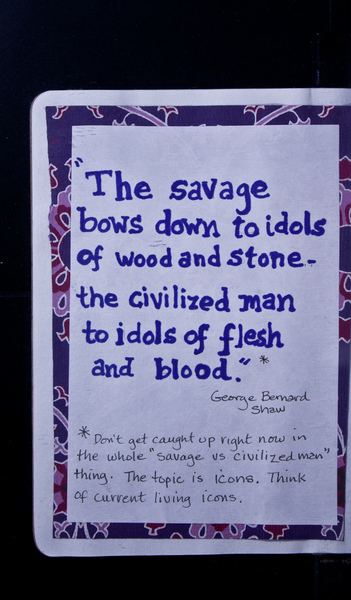 "The savage
bows down to idols
of wood and stone-
the civilized man
to idols of flesh
and blood." *
George Bernard
Shaw
*Don't get caught up right now in
the whole "savage vs civilized man"
thing. The topic is icons. Think
of current living icons.